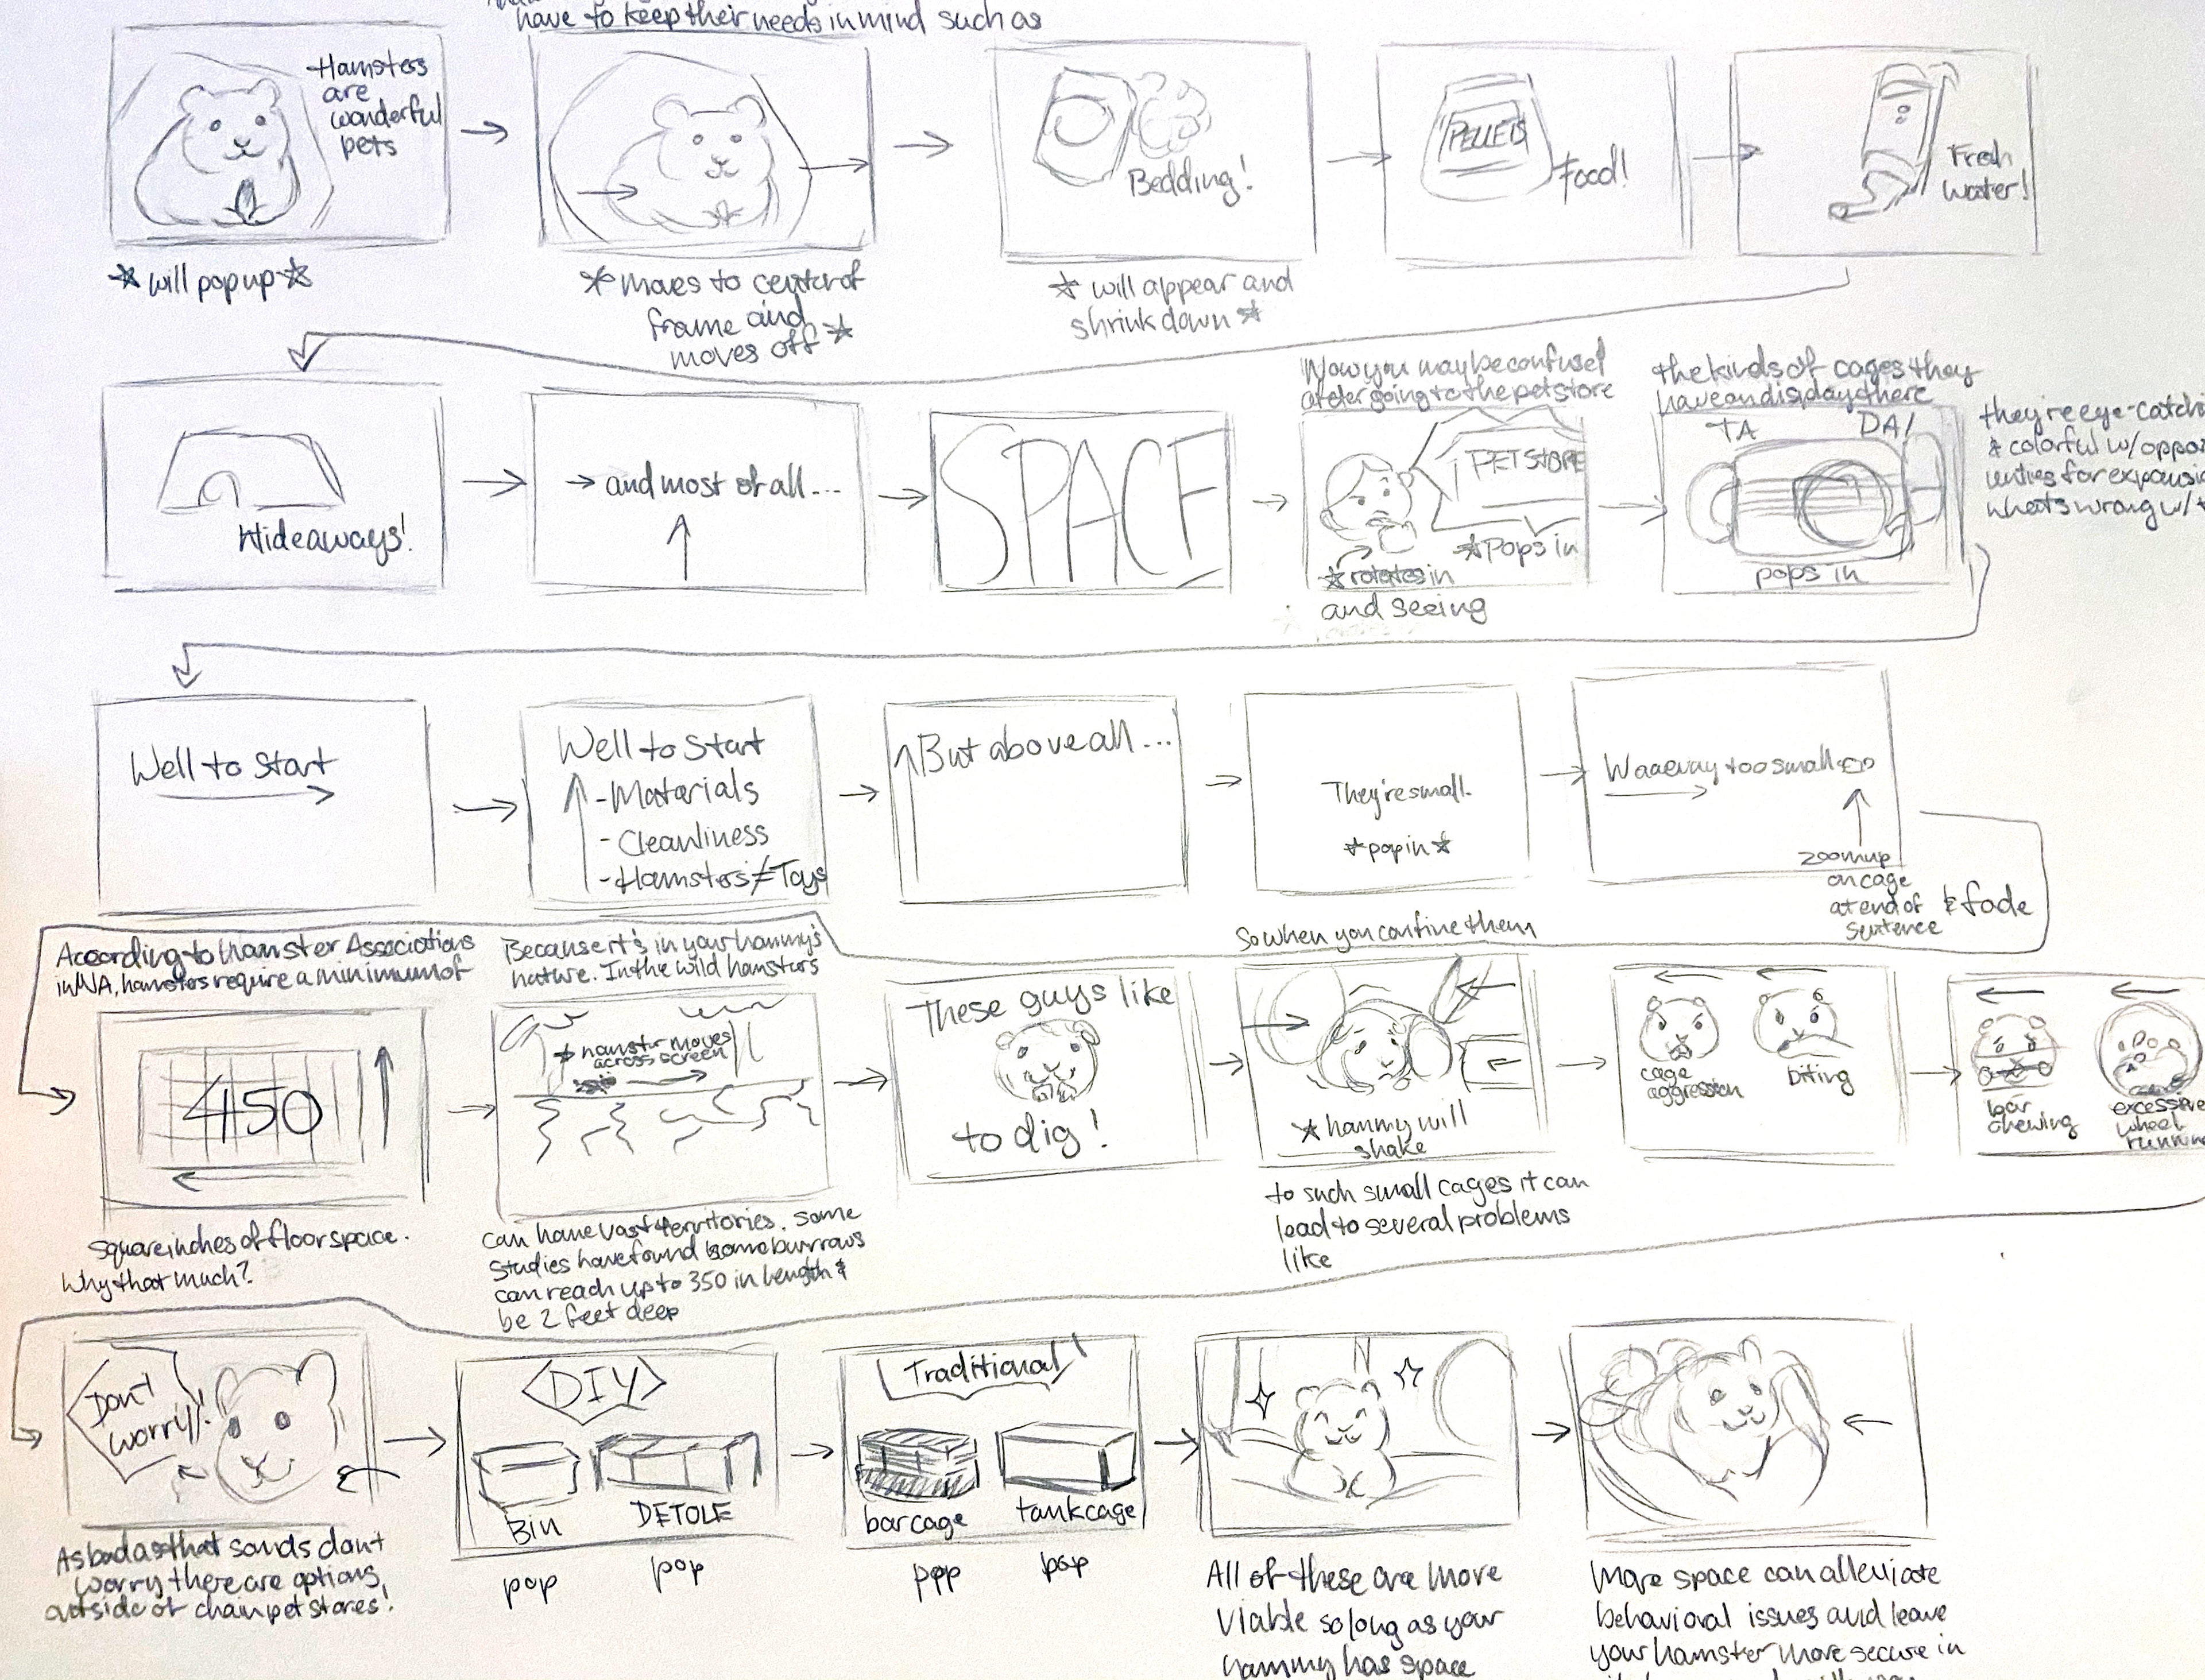 have to keep their needs in mind such as
Hamsters
are
wonderful
pets
☆ will pop up ☆
* moves to center of
frame and
moves off ☆
Bedding!
☆ will appear and
shrink down ☆
PELLETS
Food!
Fresh
water!
Hideaways!
→ and most of all...
SPACE
Now you may be confused
after going to the pet store
PET STORE
☆ Pops in
☆ rotates in
and seeing
the kinds of cages they
have on display there
TA DA!
pops in
they're eye-catchi
& colorful w/ oppor
unties for expansi
whats wrong w/ t
Well to start
Well to start
- Materials
- Cleanliness
- Hamsters ≠ Toys
But above all...
They're small.
☆ pop in ☆
Waaaway too small
zoom up
on cage
at end of & fade
sentence
According to Hamster Associations
in NA, hamsters require a minimum of
450
square inches of floor space.
Why that much?
Because it's in your hammy's
nature. In the wild hamsters
☆ hamster moves
across screen
can have vast territories. Some
studies have found some burrows
can reach up to 350 in length &
be 2 feet deep
These guys like
to dig!
So when you confine them
☆ hammy will
shake
to such small cages it can
lead to several problems
like
cage
aggression
biting
bar
chewing
excessive
wheel
runnin
Don't
worry!
As bad as that sounds dont
worry there are options
outside of chain pet stores!
DIY
Bin
DETOLF
pop
pop
Traditional
bar cage
tank cage
pop
pop
All of these are more
viable so long as your
hammy has space
More space can alleviate
behavioral issues and leave
your hamster more secure in